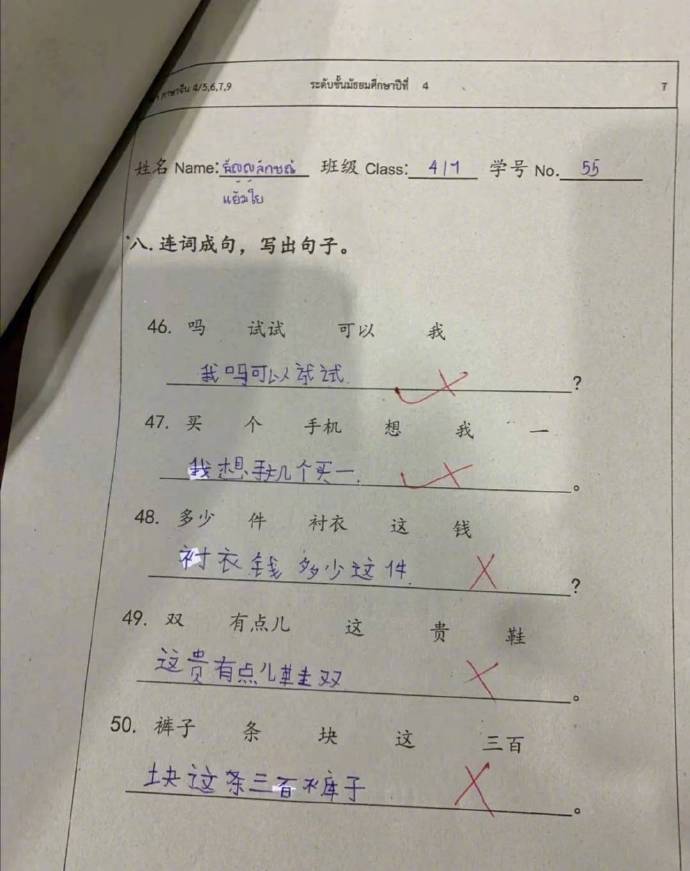 ภาษาจีน 4/5,6,7,9 ระดับชั้นมัธยมศึกษาปีที่ 4
姓名 Name: 班级 Class: 4/7 学号 No. 55
แย้มใย
八. 连词成句，写出句子。
46. 吗 试试 可以 我
我吗可以试试 ?
47. 买 个 手机 想 我 一
我想手机个买一. 。
48. 多少 件 衬衣 这 钱
衬衣钱多少这件. ?
49. 双 有点儿 这 贵 鞋
这贵有点儿鞋双 。
50. 裤子 条 块 这 三百
块这条三百裤子 。